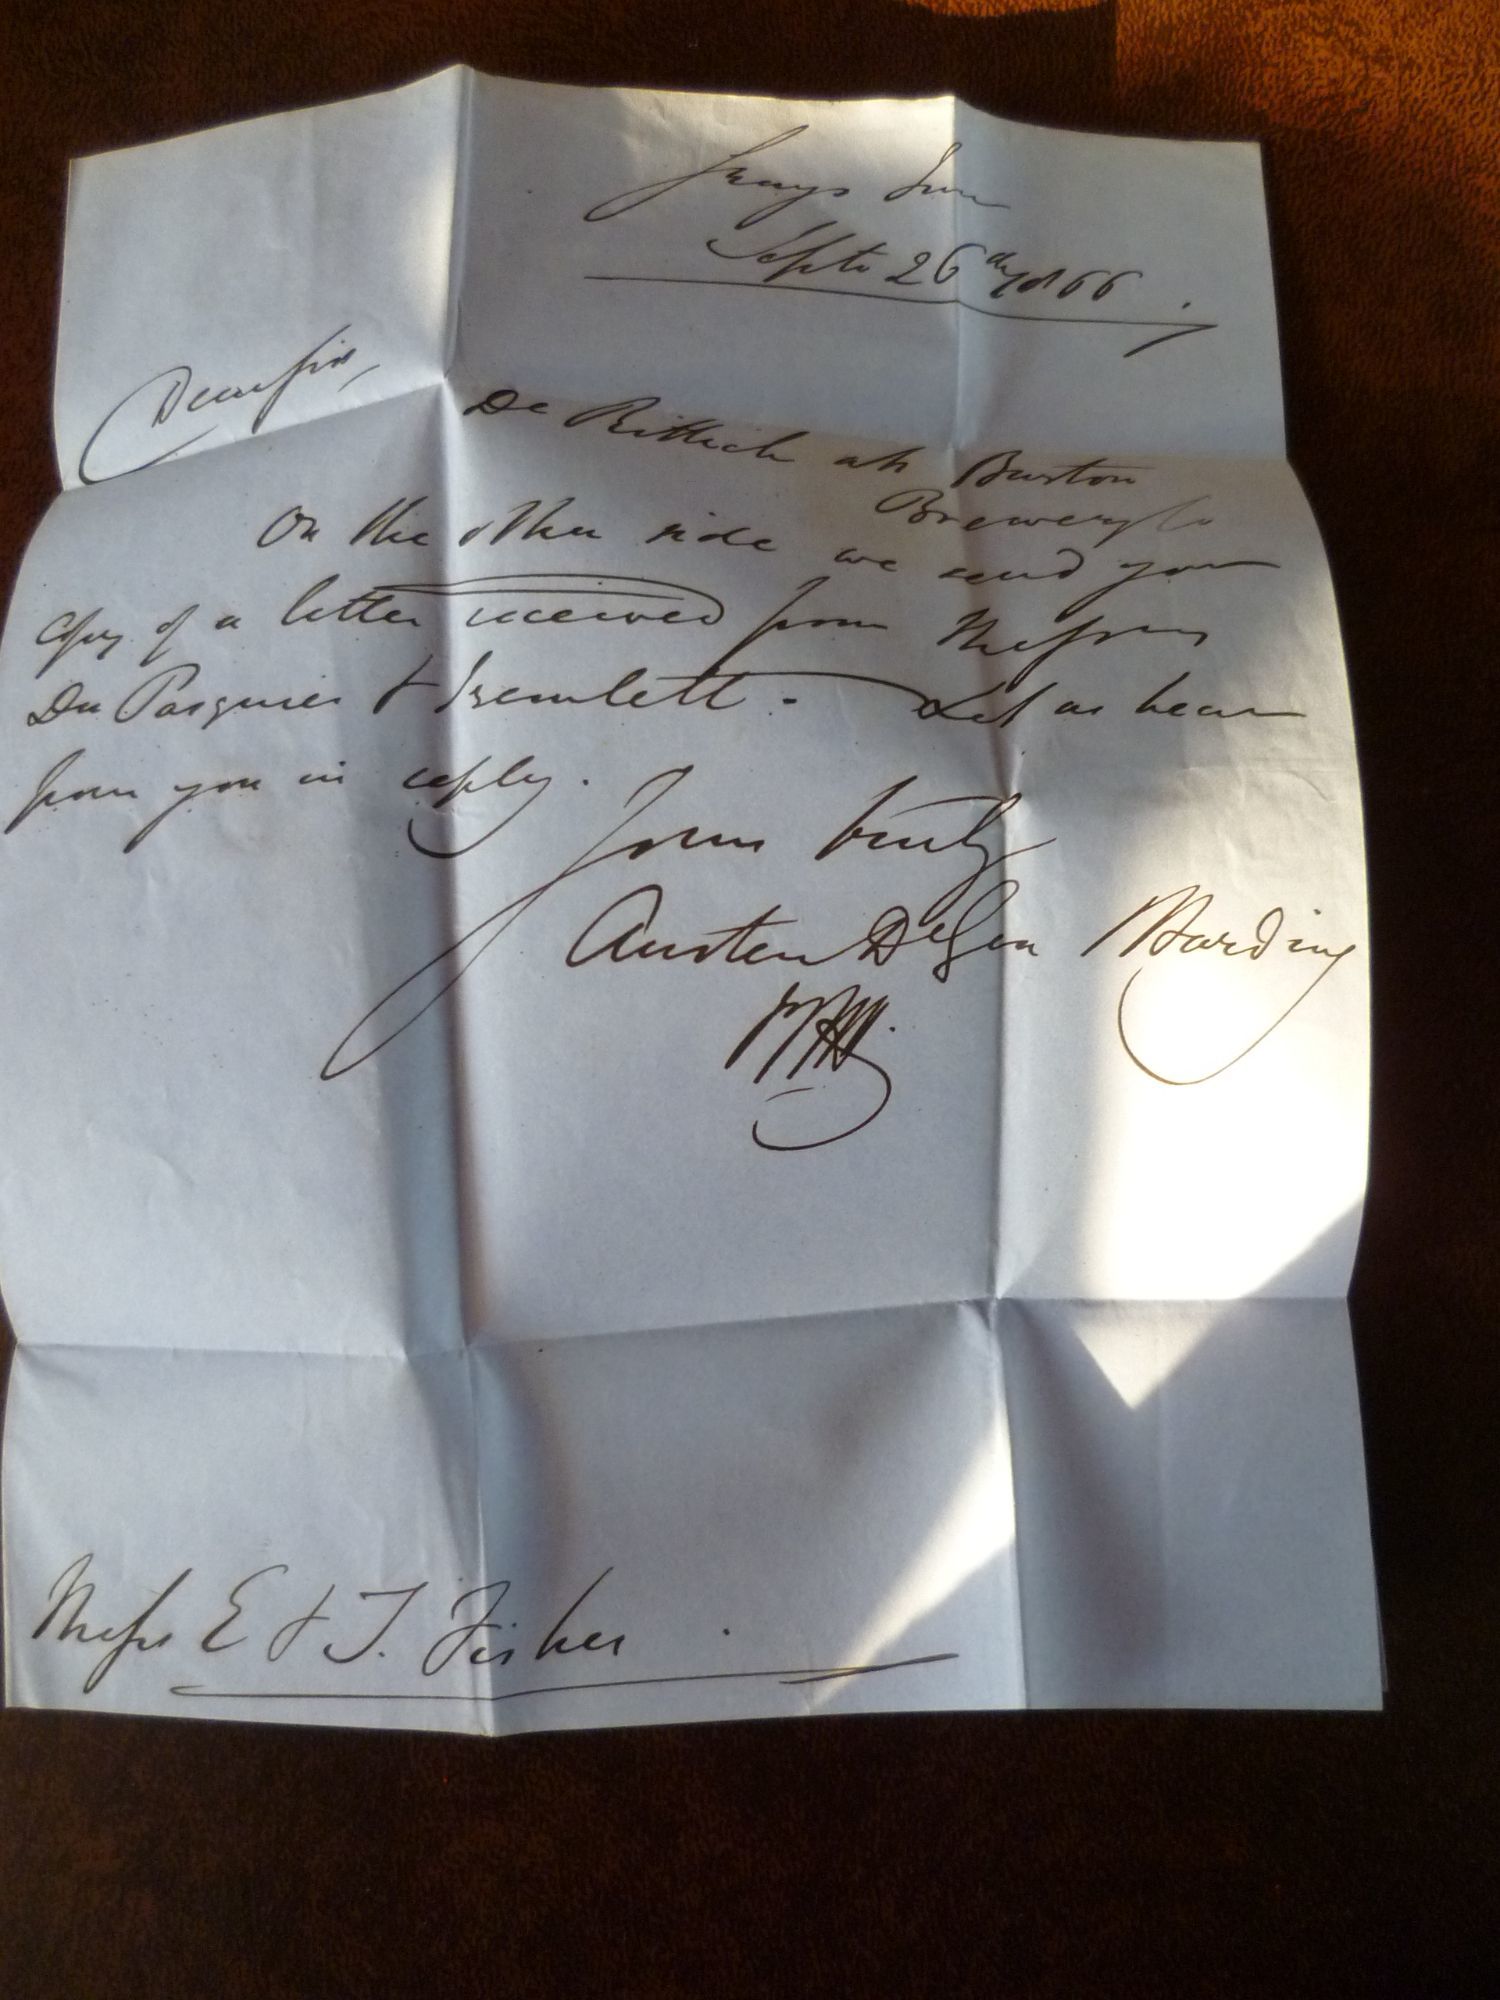 Grays Inn
Septr 26th 1866.
Dear Sir,
De Rittich ats Burton
Brewery Co
On the other side we send you
Copy of a letter received from Messrs
Du Pasquier & Tremlett. Let us hear
from you in reply.
Yours truly
Austen De Gex Harding
Messrs E & T. Fisher